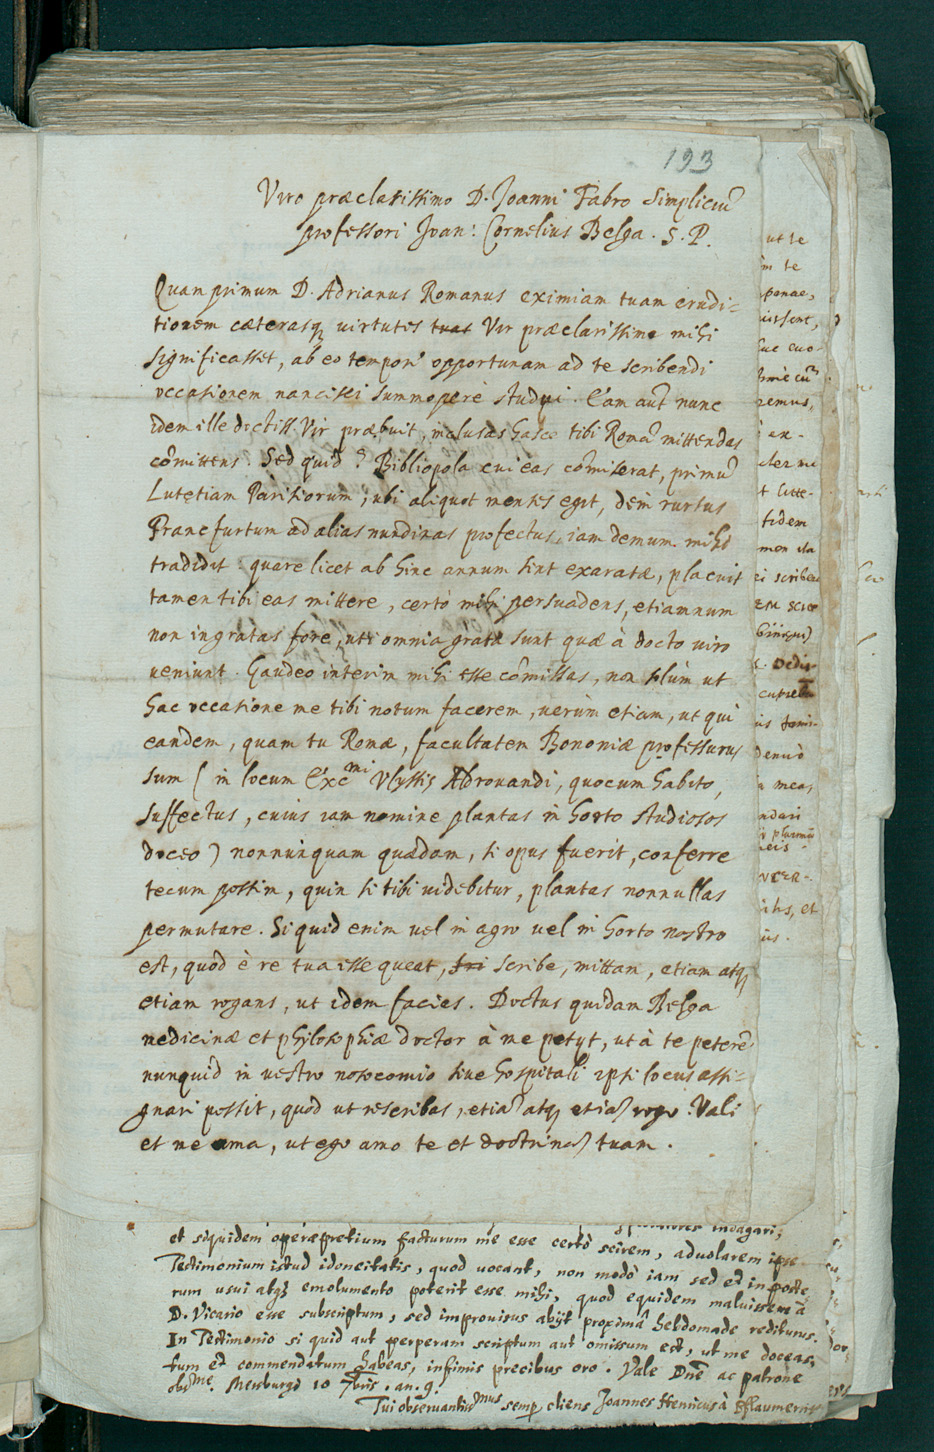 193
Viro præclarissimo D. Joanni Fabro Simpliciũ
professori Joan: Cornelius Belga. S. P.
Quam primum D. Adrianus Romanus eximiam tuam erudi-
tionem cæterasq virtutes tuas Vir præclarissime mihi
significasset, ab eo tempori opportunam ad te scribendi
occasionem nancisci summoperè studui. Eam aut nunc
idem ille doctiss. Vir præbuit, inclusas hasce tibi Romã mittendas
cõmittens. Sed quid? Bibliopola cui eas cõmiserat, primũ
Lutetiam Parisiorum, ubi aliquot menses egit, dein rursus
Francfurtum ad alias nundinas profectus, iam demum mihi
tradidit: quare licet ab hinc annum sint exaratæ, placuit
tamen tibi eas mittere, certò mihi persuadens, etiamnum
non ingratas fore, uti omnia grata sunt quæ à docto viro
veniunt. Gaudeo interim mihi esse cõmissas, non solùm ut
hac occasione me tibi notum facerem, verùm etiam, ut qui
eandem, quam tu Romæ, facultatem Bononiæ professurus
sum (in locum Exc.mi Vlyssis Aldrovandi, quocum habito,
suffectus, cuius iam nomine plantas in horto studiosos
doceo) nonnunquam quædam, si opus fuerit, conferre
tecum possim, quin si tibi videbitur, plantas nonnullas
permutare. Si quid enim vel in agro vel in horto nostro
est, quod è re tua esse queat, scribe, mittam, etiam atq
etiam rogans, ut idem facies. Doctus quidam Belga
medicinæ et philosophiæ doctor à me petyt, ut à te peterẽ
nunquid in vestro nosocomio sive hospitali ipsi locus assi-
gnari possit, quod ut rescribas, etiã atq etiã rogo. Vali
et me ama, ut ego amo te et doctrinã tuam.
indagari;
et siquidem operæpretium facturum me esse certò scirem, advolarem ipse.
Testimonium istud idoneitatis, quod vocant, non modò iam sed et in poste-
rum usui atq emolumento poterit esse mihi, quod equidem maluissem à
D. Vicario esse subscriptum, sed improvisus abijt proximâ hebdomade rediturus.
In Testimonio si quid aut perperam scriptum aut omissum est, ut me doceas,
tum et commendatum habeas, infimis precibus oro. Vale Dñe ac patrone
obs.me. Mersburgi 10 7bris. an. 9.
Tui observantissmus semp cliens Joannes Henricus à Pflaumern
ut te
te
ponae,
uissent,
remus,
ex-
litte-
tidem
men ita
ei scribe
dedi
denuò
meas
et